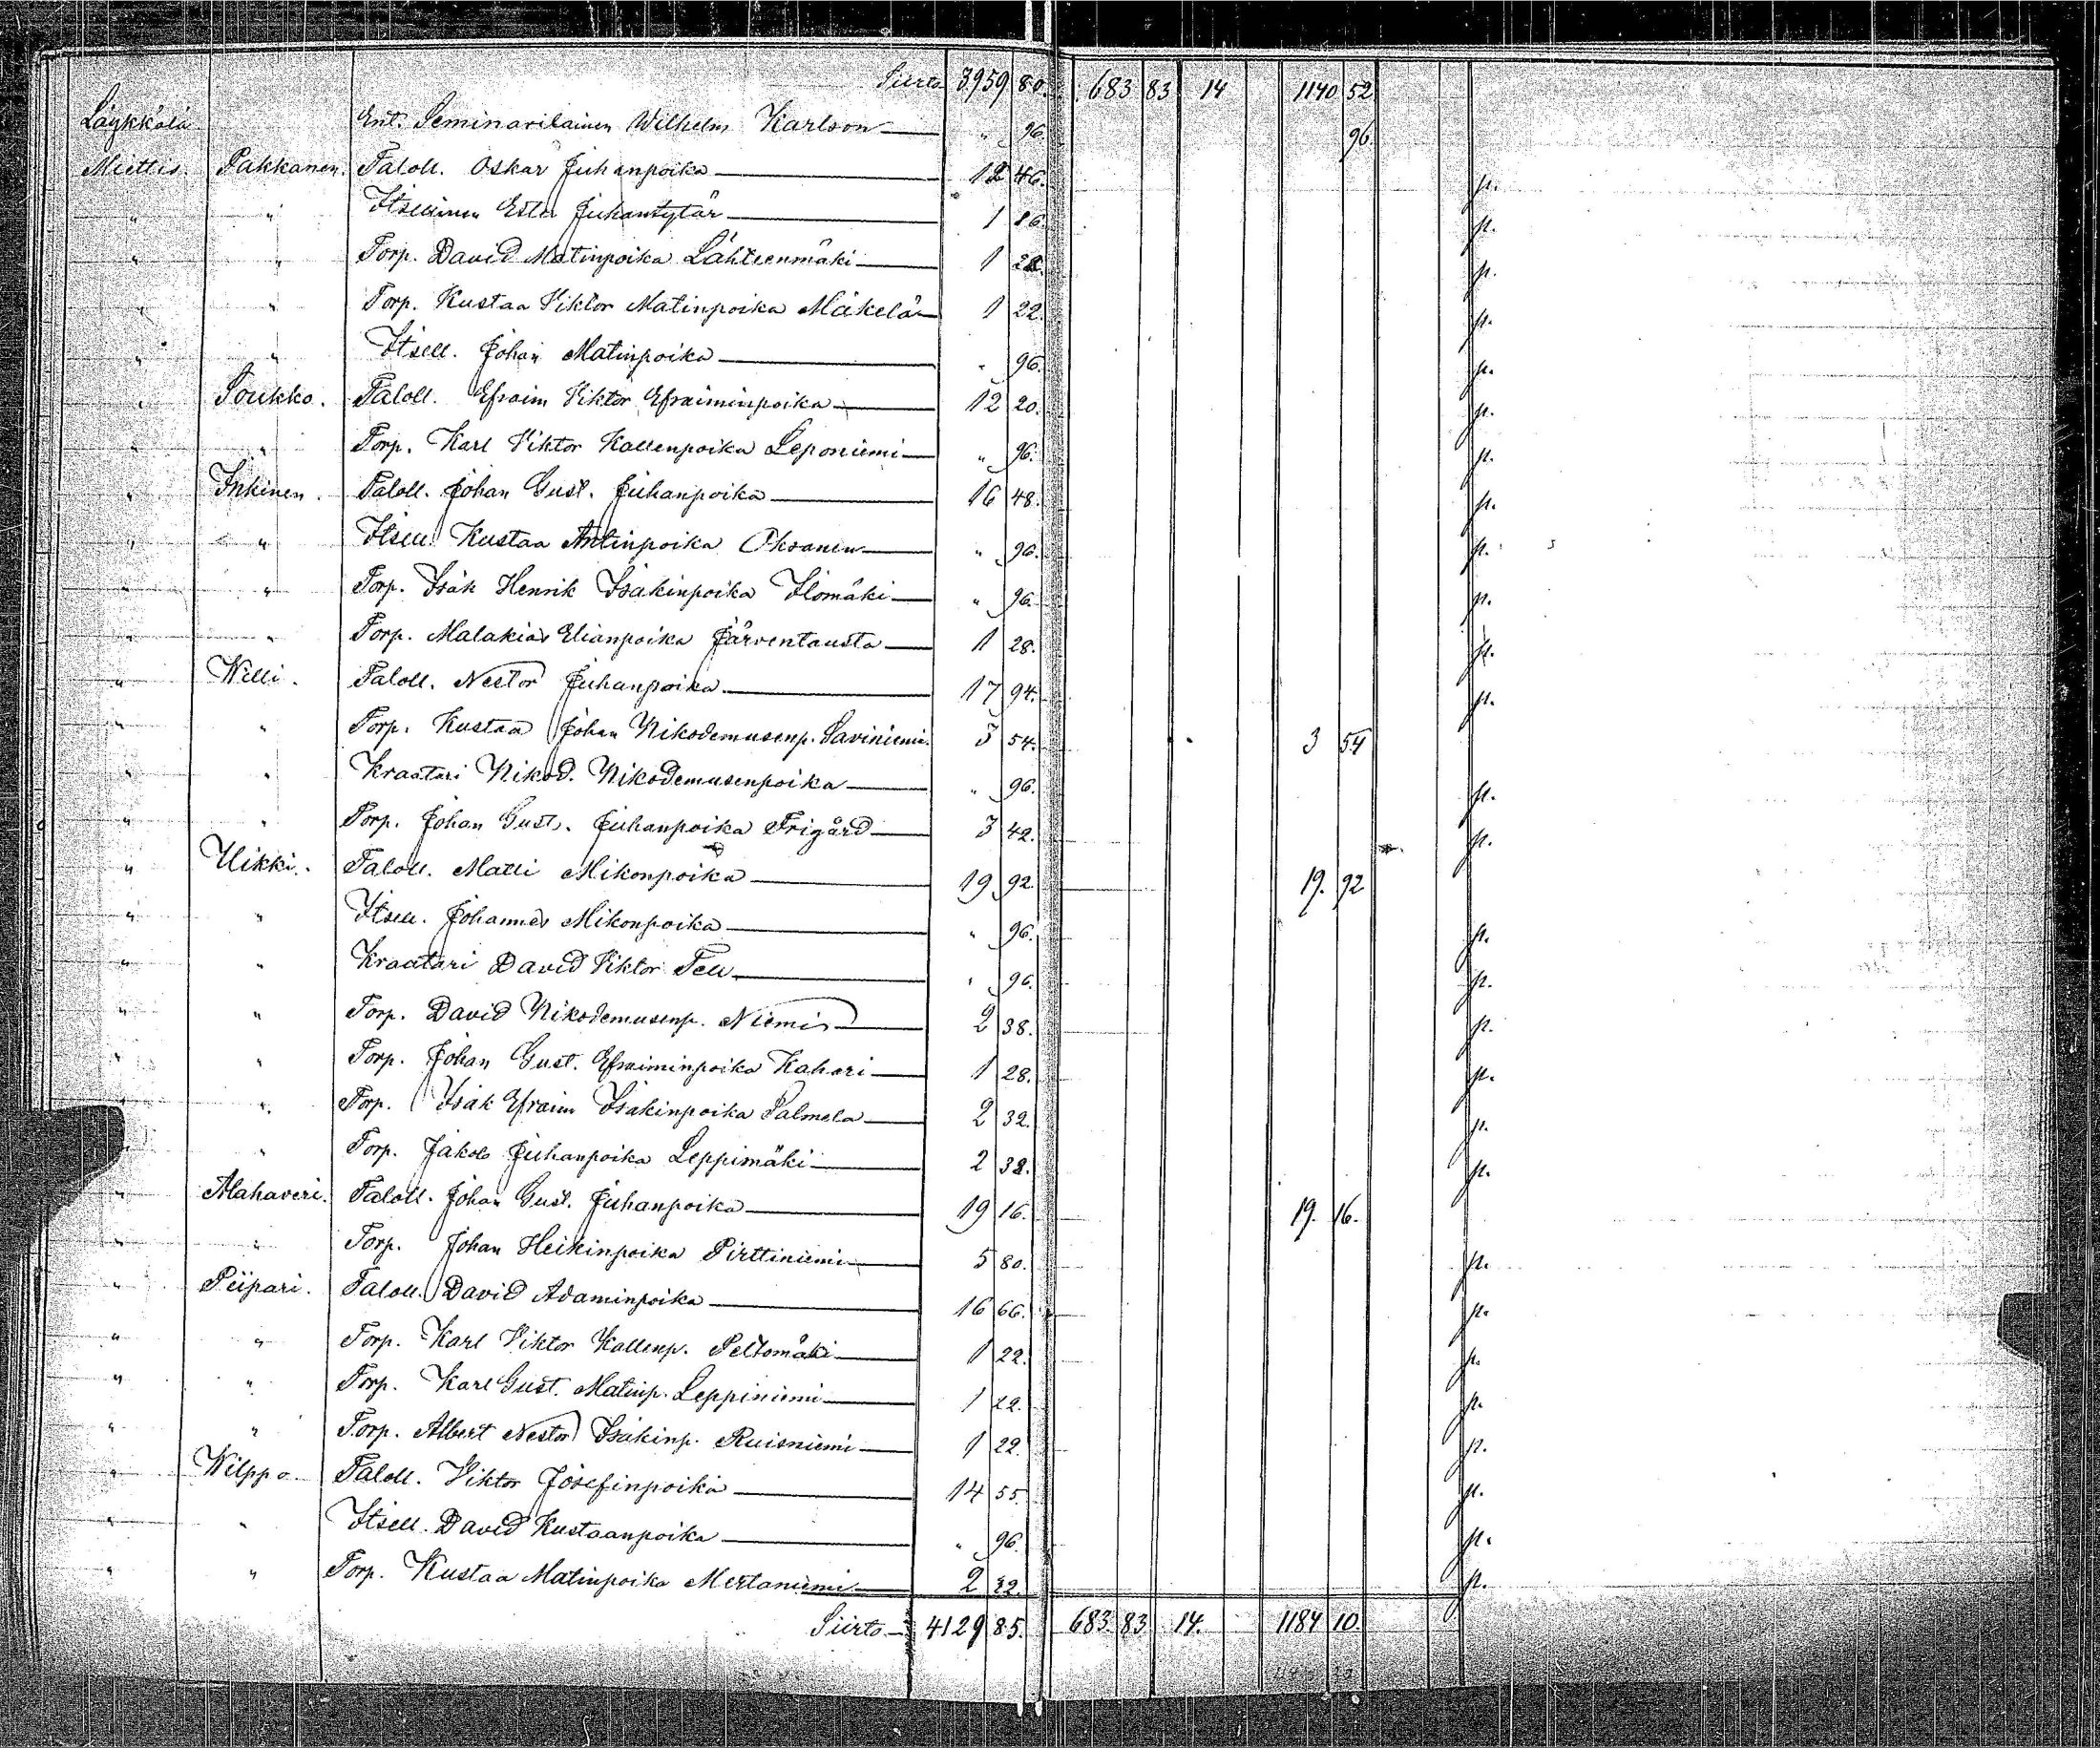 Siirto 3959 80. 683 83 14 1140 52
Läykkälä Ent. Seminarilainen Wilhelm Karlson " 96. 96.
Miettis. Pakkanen. Taloll. Oskar Juhanpoika 12 46. p.
" " Itsellinen Ester Juhantytär 1 86. p.
" " Torp. David Matinpoika Lähteenmäki 1 28. p.
" " Torp. Kustaa Viktor Matinpoika Mäkelä 1 22. p.
" " Itsell. Johan Matinpoika " 96. p.
" Soukko. Taloll. Efraim Viktor Efraiminpoika 12 20. p.
" " Torp. Karl Viktor Kallenpoika Leponiemi " 96. p.
" Inkinen. Taloll. Johan Gust. Juhanpoika 16 48. p.
" " Itsell. Kustaa Antinpoika Oksanen " 96. p.
" " Torp. Isak Henrik Isakinpoika Ilomäki " 96. p.
" " Torp. Malakias Elianpoika Järventausta 1 28. p.
" Willi. Taloll. Nestor Juhanpoika 17 94. p.
" " Torp. Kustaa Johan Nikodemusenp. Saviniemi. 3 54. 3 54
" " Kraatari Nikod. Nikodemusenpoika " 96. p.
" " Torp. Johan Gust. Juhanpoika Frigård 3 42. p.
" Uikki. Taloll. Matti Mikonpoika 19 92. 19. 92
" " Itsell. Johannes Mikonpoika " 96. p.
" " Kraatari David Viktor Tell " 96. p.
" " Torp. David Nikodemusenp. Niemi 2 38. p.
" " Torp. Johan Gust. Efraiminpoika Kahari 1 28. p.
" " Torp. Isak Efraim Isakinpoika Salmela 2 32. p.
" Torp. Jakob Juhanpoika Leppimäki 2 38. p.
" Alahaveri. Taloll. Johan Gust. Juhanpoika 19 16. 19. 16.
" " Torp. Johan Heikinpoika Pirttiniemi 5 80. p.
" Piipari. Taloll. David Adaminpoika 16 66. p.
" " Torp. Karl Viktor Kallenp. Peltomäki 1 22. p.
" " Torp. Karl Gust. Matinp. Leppiniemi 1 22. p.
" " Torp. Albert Nestor Isakinp. Ruisniemi 1 22. p.
" Wilppo Taloll. Viktor Josefinpoika 14 55. p.
" " Itsell. David Kustaanpoika " 96. p.
" " Torp. Kustaa Matinpoika Mertaniemi 2 32. p.
Siirto 4129 85. 683. 83 14. 1184 10.